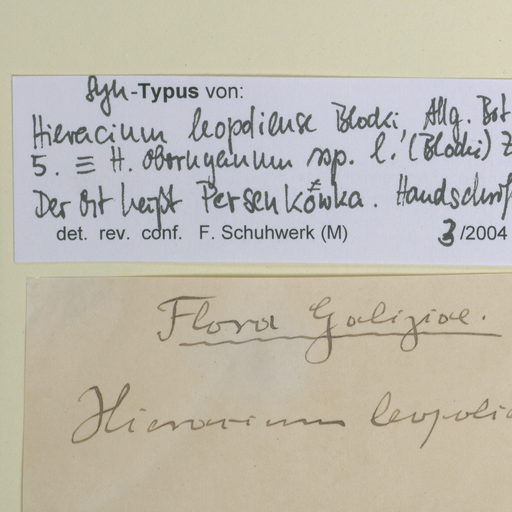 Syn-Typus von:
Hieracium leopoliense Błocki, Allg. Bot
5. ≡ H. obornyanum ssp. l. (Błocki) Z
Der Ort heißt Persenkówka. Handschrif
det. rev. conf. F. Schuhwerk (M) 3/2004
Flora Galiziae.
Hieracium leopoli